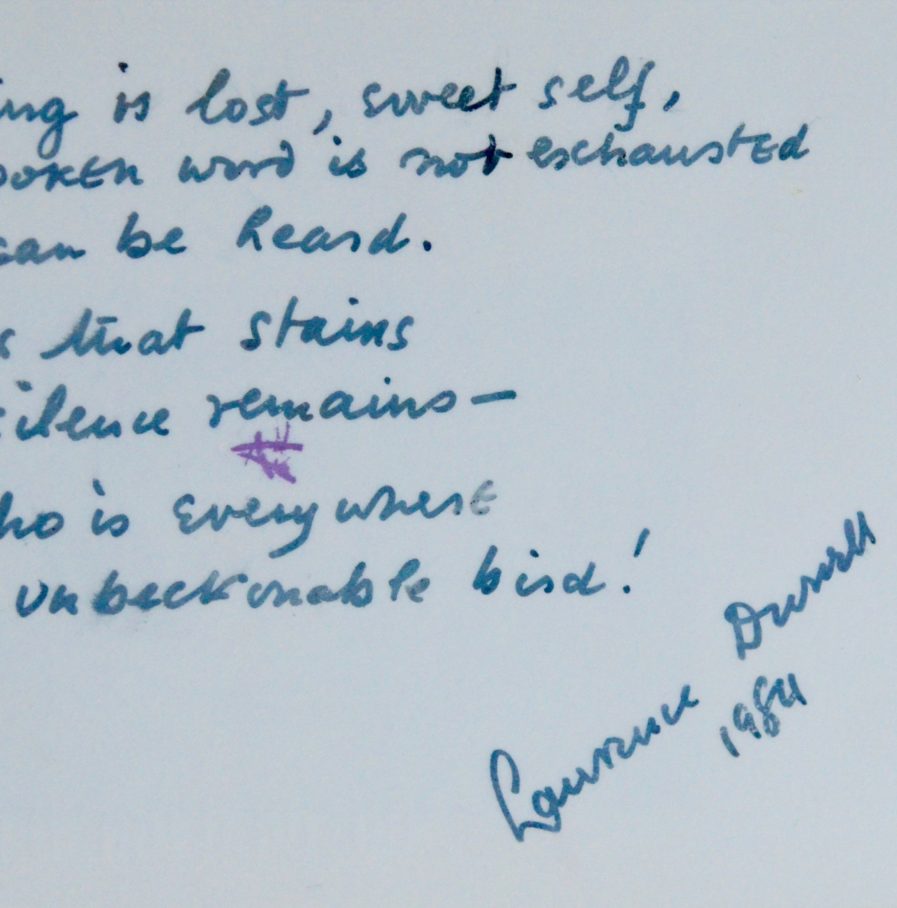 ing is lost, sweet self,
oken word is not exhausted
can be heard.
s that stains
silence remains—
ho is everywhere
unbeckonable bird!
Lawrence Durrell
1984